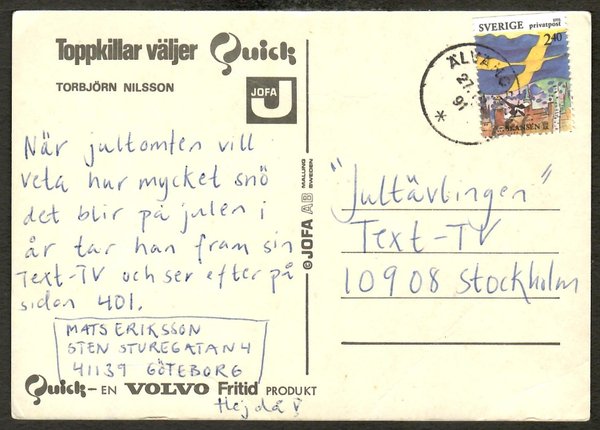 Toppkillar väljer Quick
TORBJÖRN NILSSON
JOFA
J
SVERIGE privatpost
2.40
SKANSEN
27.
91
*
När jultomten vill
veta hur mycket snö
det blir på julen i
år tar han fram sin
Text-TV och ser efter på
sidan 401.
MATS ERIKSSON
STEN STUREGATAN 4
41139 GÖTEBORG
Quick – EN VOLVO Fritid PRODUKT
Hejdå
©JOFA AB MALUNG
SWEDEN
"Jultävlingen"
Text-TV
10908 Stockholm